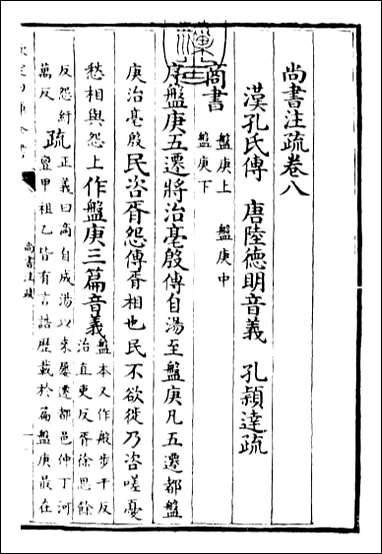 尚書注疏卷八
漢孔氏傳　唐陸德明音義　孔穎達疏
商書
盤庚上　盤庚中
盤庚下
序盤庚五遷將治亳殷傳自湯至盤庚凡五遷都盤
庚治亳殷民咨胥怨傳胥相也民不欲徙乃咨嗟憂
愁相與怨上作盤庚三篇音義盤本又作般步干反
治直吏反胥徐思餘
反怨紆
萬反
疏正義曰商自成湯以來屢遷都邑仲丁河
亶甲祖乙皆有言誥歷載於篇盤庚最在
尚書注疏